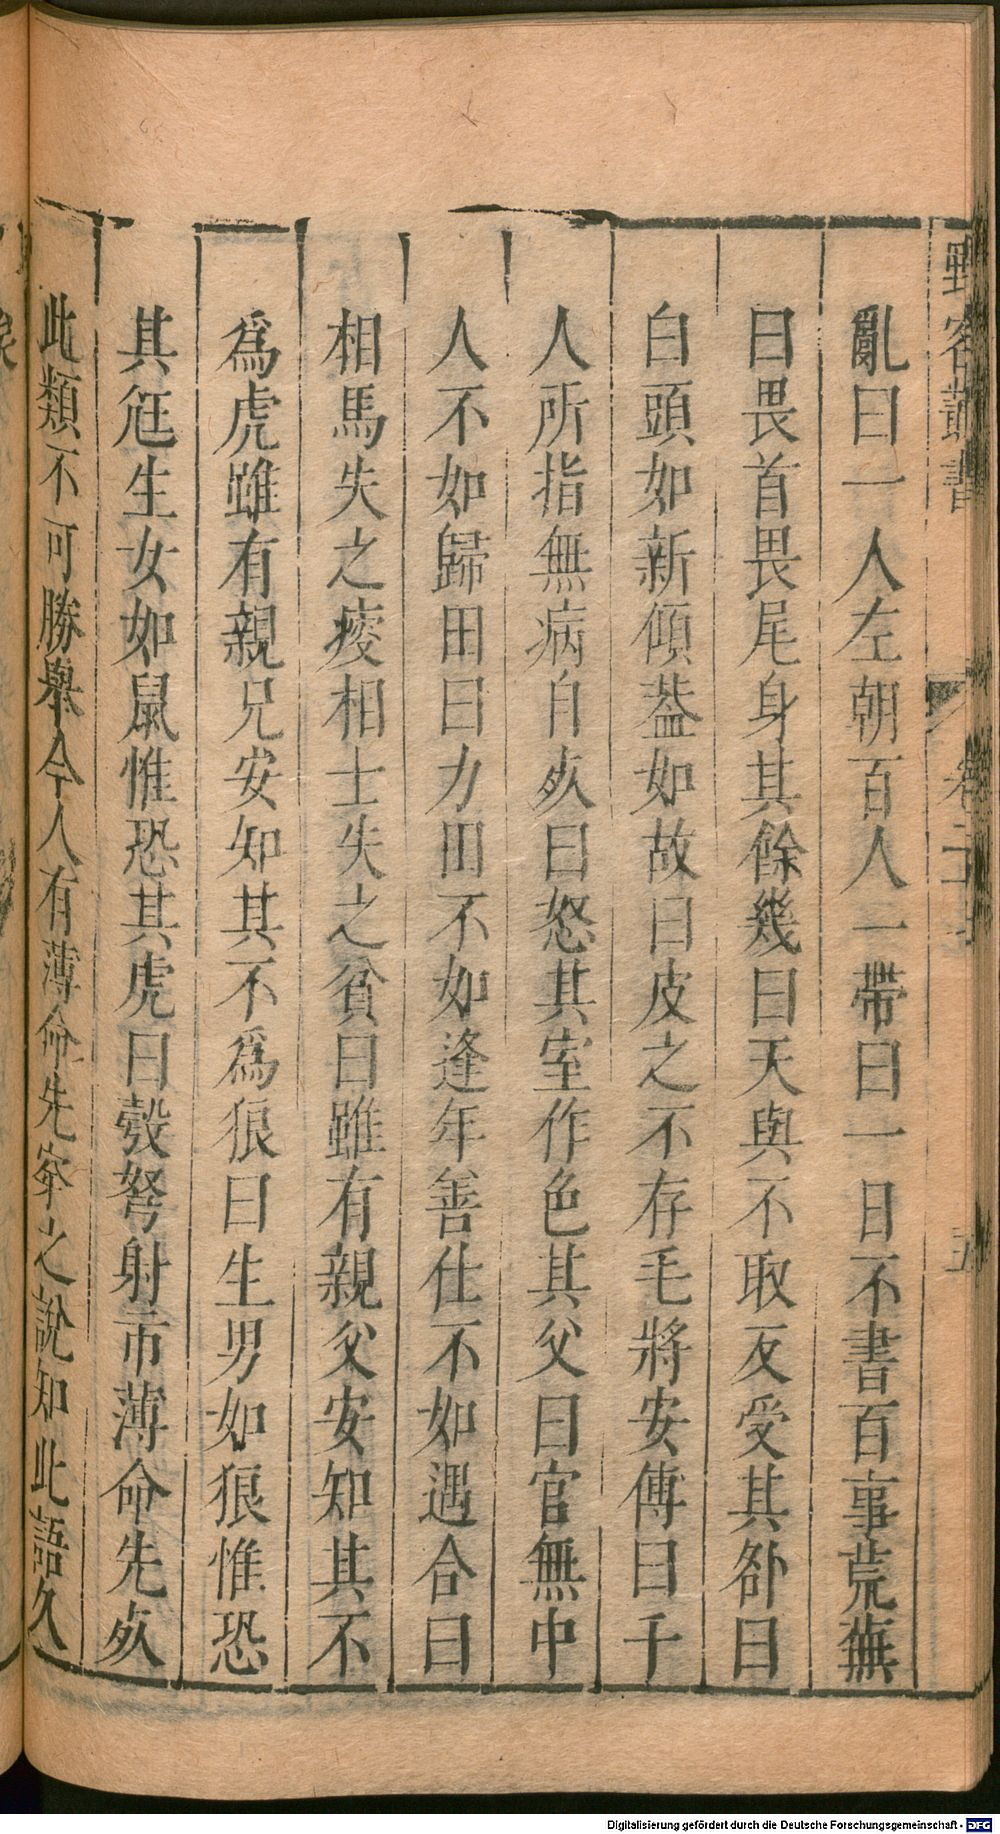 野客叢書 卷二十 五
亂曰一人左朝百人一帶曰一日不書百事荒蕪
曰畏首畏尾身其餘幾曰天與不取反受其郤曰
白頭如新傾葢如故曰皮之不存毛將安傅曰千
人所指無病自死曰怒其室作色其父曰官無中
人不如歸田曰力田不如逢年善仕不如遇合曰
相馬失之瘦相士失之貧曰雖有親父安知其不
爲虎雖有親兄安知其不爲狼曰生男如狼惟恐
其尫生女如鼠惟恐其虎曰彀弩射市薄命先死
此類不可勝舉今人有薄命先穽之說知此語久
Digitalisierung gefördert durch die Deutsche Forschungsgemeinschaft - DFG